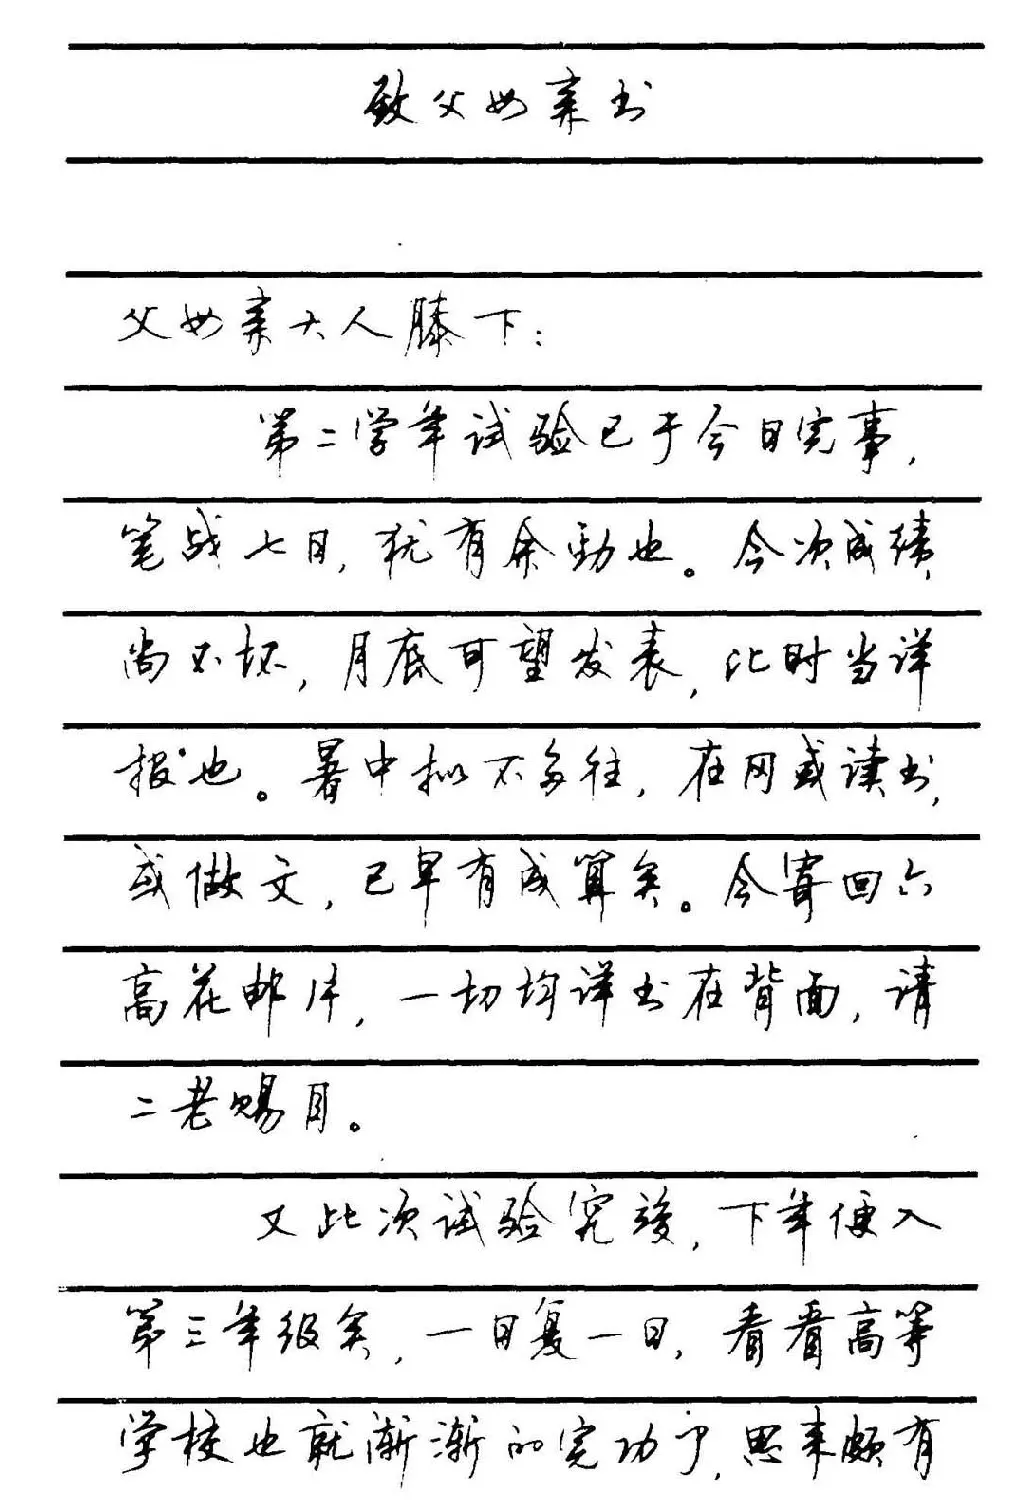 致父母亲书
父母亲大人膝下：
第二学年试验已于今日完事，
笔战七日，犹有余勁也。今次成绩，
尚不坏，月底可望发表，比时当详
报也。暑中拟不多往，在冈或读书，
或做文，已早有成算矣。今寄回六
高花邮片，一切均详书在背面，请
二老赐目。
又此次试验完竣，下年便入
第三年级矣，一日复一日，看看高等
学校也就渐渐的完功了，思来颇有